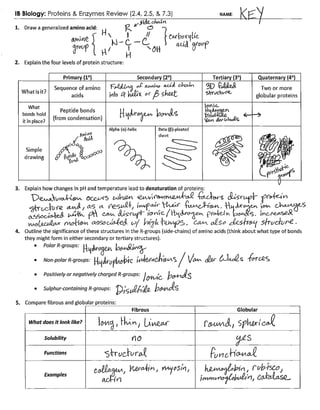 IB Biology: Proteins & Enzymes Review (2.4, 2.5, & 7.3)
NAME: KEY
1. Draw a generalized amino acid:
R side chain
amine group
H
H
N - C - C
O
OH
H
carboxylic acid group
2. Explain the four levels of protein structure:
Primary (1°)
Secondary (2°)
Tertiary (3°)
Quaternary (4°)
What is it?
Sequence of amino acids
Folding of amino acid chain into α helix or β sheet
3D folded structure
Two or more globular proteins
What bonds hold it in place?
Peptide bonds (from condensation)
Hydrogen bonds
Ionic
Hydrogen
Disulfide
Van der Waals
Simple drawing
Amino Acid
Amino Acids
Alpha (α)-helix
Beta (β)-pleated sheet
prosthetic group
3. Explain how changes in pH and temperature lead to denaturation of proteins:
Denaturation occurs when environmental factors disrupt protein
structure and, as a result, impair their function. Hydrogen ion changes
associated with pH can disrupt ionic/Hydrogen protein bonds. increased
molecular motion associated w/ high temps. can also destroy structure.
4. Outline the significance of these structures in the R-groups (side-chains) of amino acids (think about what type of bonds
they might form in either secondary or tertiary structures).
• Polar R-groups: Hydrogen bonding
• Non-polar R-groups: Hydrophobic interactions / Van der Waals forces
• Positively or negatively charged R-groups: Ionic bonds
• Sulphur-containing R-groups: Disulfide bonds
5. Compare fibrous and globular proteins:
Fibrous
Globular
What does it look like?
long, thin, linear
round, spherical
Solubility
no
yes
Functions
structural
functional
Examples
collagen, keratin, myosin, actin
hemoglobin, rubisco, immunoglobulin, catalase